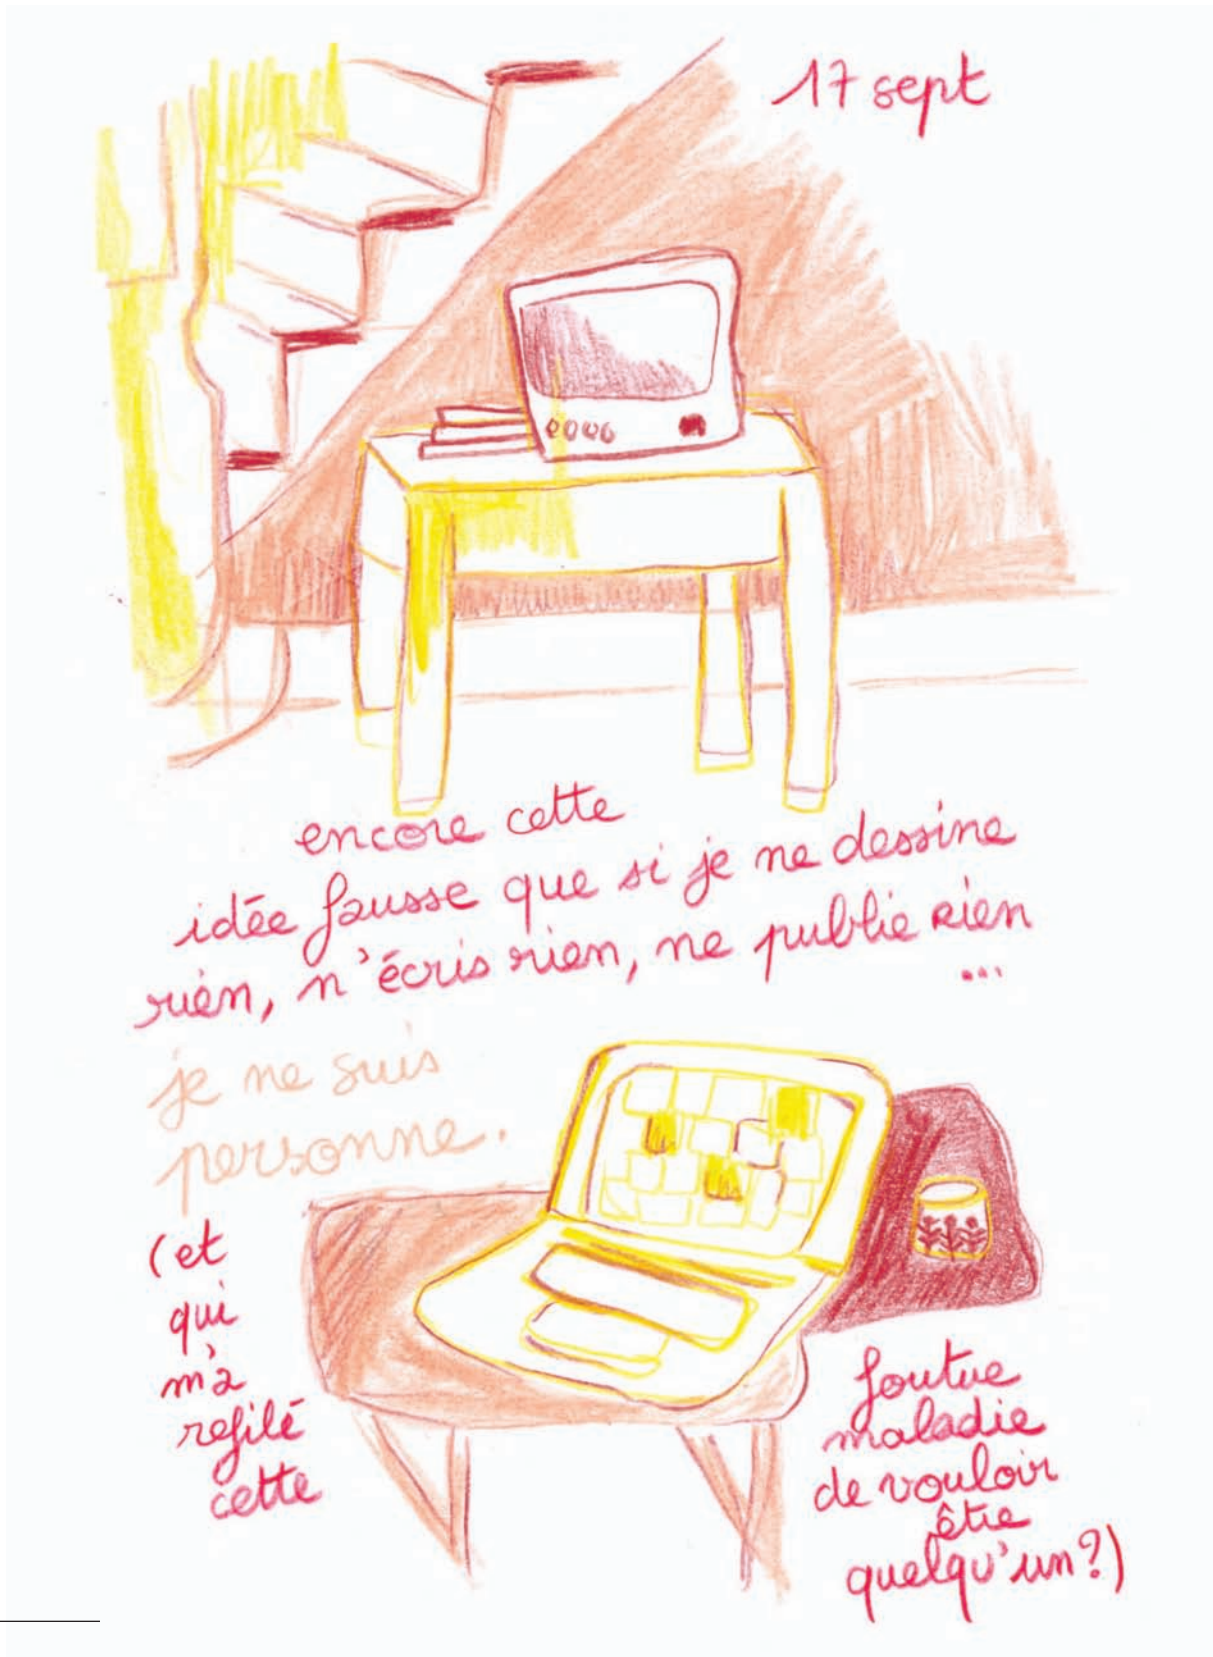 17 sept
encore cette
idée fausse que si je ne dessine
rien, n'écris rien, ne publie rien
...
je ne suis
personne.
(et
qui
m'a
refilé
cette
foutue
maladie
de vouloir
être
quelqu'un?)